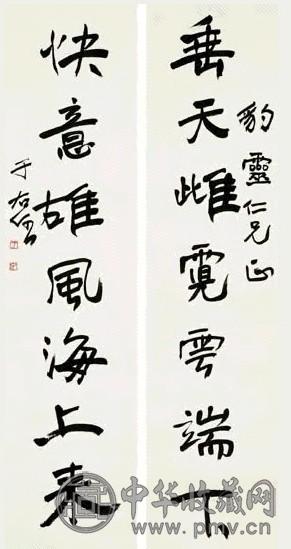 豹靈仁兄正
垂天雌霓雲端下
快意雄風海上来
于右任
中华收藏网
www.pmv.cn